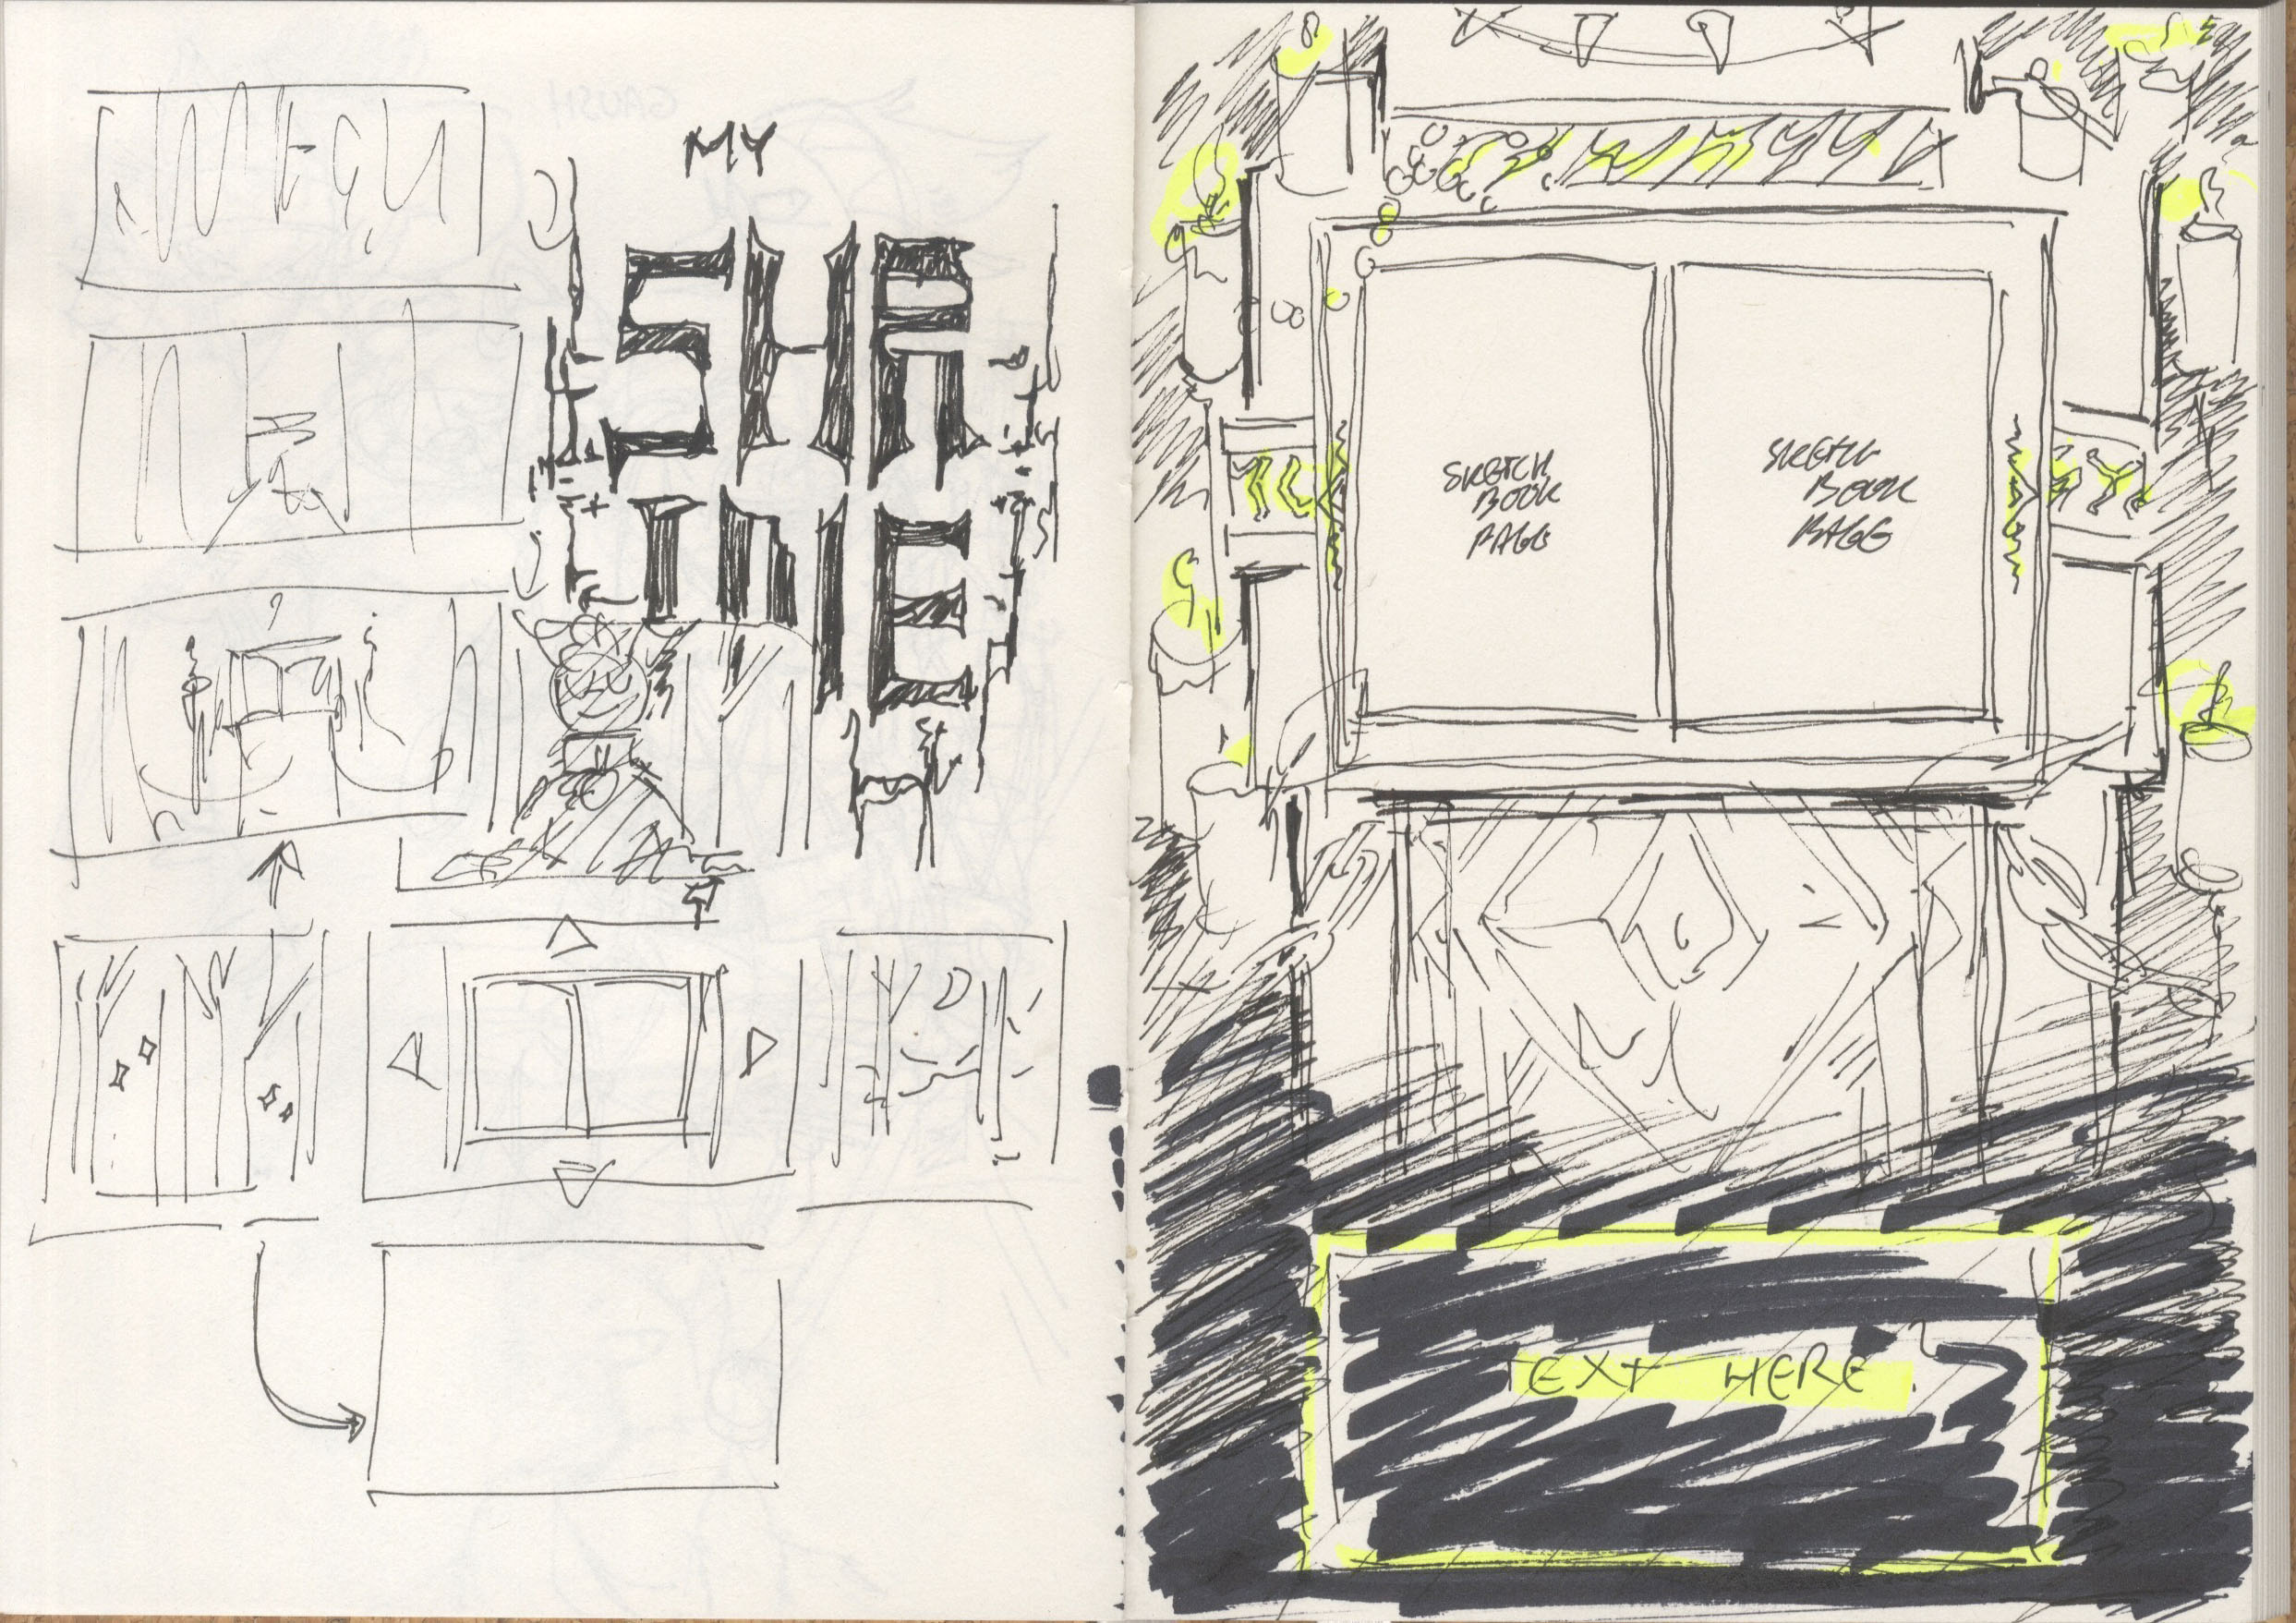 MY
SHR
INE
SKETCH
BOOK
PAGE
SKETCH
BOOK
PAGE
TEXT HERE